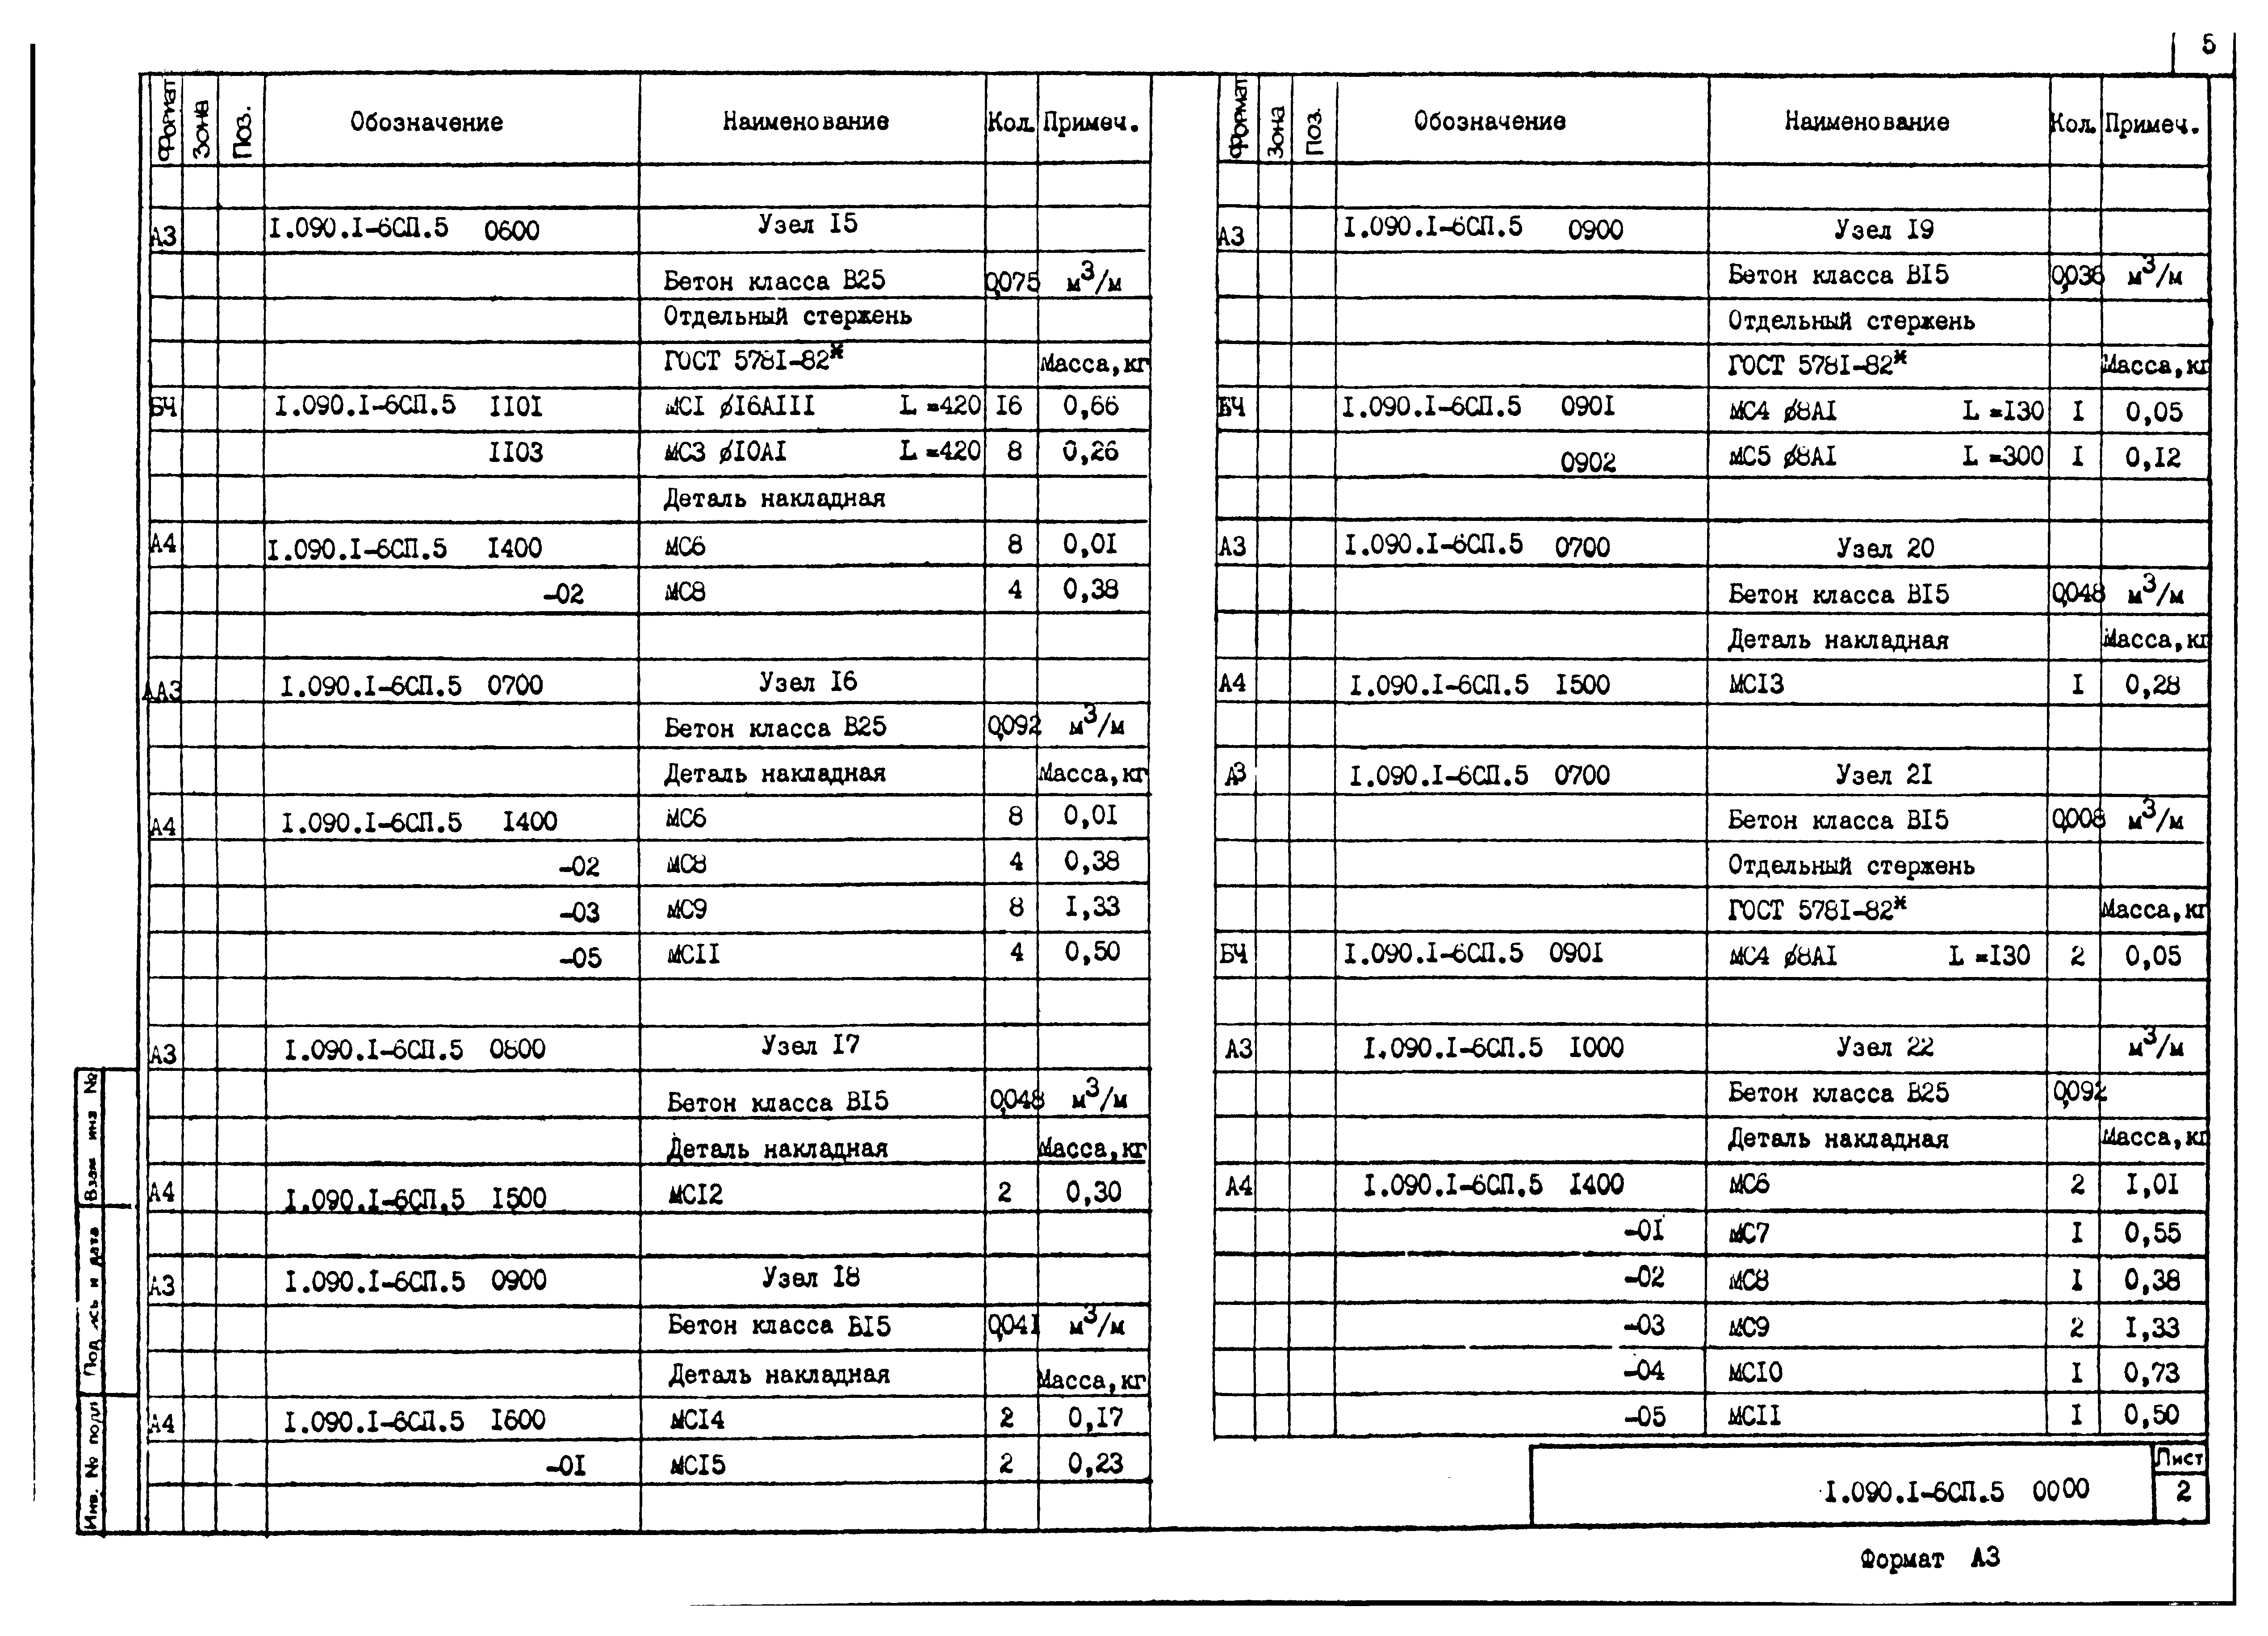 5
Формат Зона Поз. Обозначение Наименование Кол. Примеч.
А3 I.090.I-6СП.5 0600 Узел I5
Бетон класса В25 0,075 м3/м
Отдельный стержень
ГОСТ 578I-82ж Масса,кг
БЧ I.090.I-6СП.5 II0I МСI ØI6АIII L =420 I6 0,66
II03 МС3 ØI0АI L =420 8 0,26
Деталь накладная
А4 I.090.I-6СП.5 I400 МС6 8 0,0I
-02 МС8 4 0,38
АА3 I.090.I-6СП.5 0700 Узел I6
Бетон класса В25 0,092 м3/м
Деталь накладная Масса,кг
А4 I.090.I-6СП.5 I400 МС6 8 0,0I
-02 МС8 4 0,38
-03 МС9 8 I,33
-05 МСII 4 0,50
А3 I.090.I-6СП.5 0800 Узел I7
Бетон класса ВI5 0,048 м3/м
Деталь накладная Масса,кг
А4 I.090.I-6СП.5 I500 МСI2 2 0,30
А3 I.090.I-6СП.5 0900 Узел I8
Бетон класса ВI5 0,04I м3/м
Деталь накладная Масса,кг
А4 I.090.I-6СП.5 I600 МСI4 2 0,I7
-0I МСI5 2 0,23
Формат Зона Поз. Обозначение Наименование Кол. Примеч.
А3 I.090.I-6СП.5 0900 Узел I9
Бетон класса ВI5 м3/м
Отдельный стержень
ГОСТ 578I-82ж Масса,кг
БЧ I.090.I-6СП.5 090I МС4 Ø8АI L =I30 I 0,05
0902 МС5 Ø8АI L =300 I 0,I2
А3 I.090.I-6СП.5 0700 Узел 20
Бетон класса ВI5 0,048 м3/м
Деталь накладная Масса,кг
А4 I.090.I-6СП.5 I500 МСI3 I 0,28
А3 I.090.I-6СП.5 0700 Узел 2I
Бетон класса ВI5 0,008 м3/м
Отдельный стержень
ГОСТ 578I-82ж Масса,кг
БЧ I.090.I-6СП.5 090I МС4 Ø8АI L =I30 2 0,05
А3 I.090.I-6СП.5 I000 Узел 22 м3/м
Бетон класса В25 0,092
Деталь накладная Масса,кг
А4 I.090.I-6СП.5 I400 МС6 2 I,0I
-0I МС7 I 0,55
-02 МС8 I 0,38
-03 МС9 2 I,33
-04 МСI0 I 0,73
-05 МСII I 0,50
Взам инв №
Под ись и дата
Инв. № подл
I.090.I-6СП.5 0000
Лист
2
Формат А3